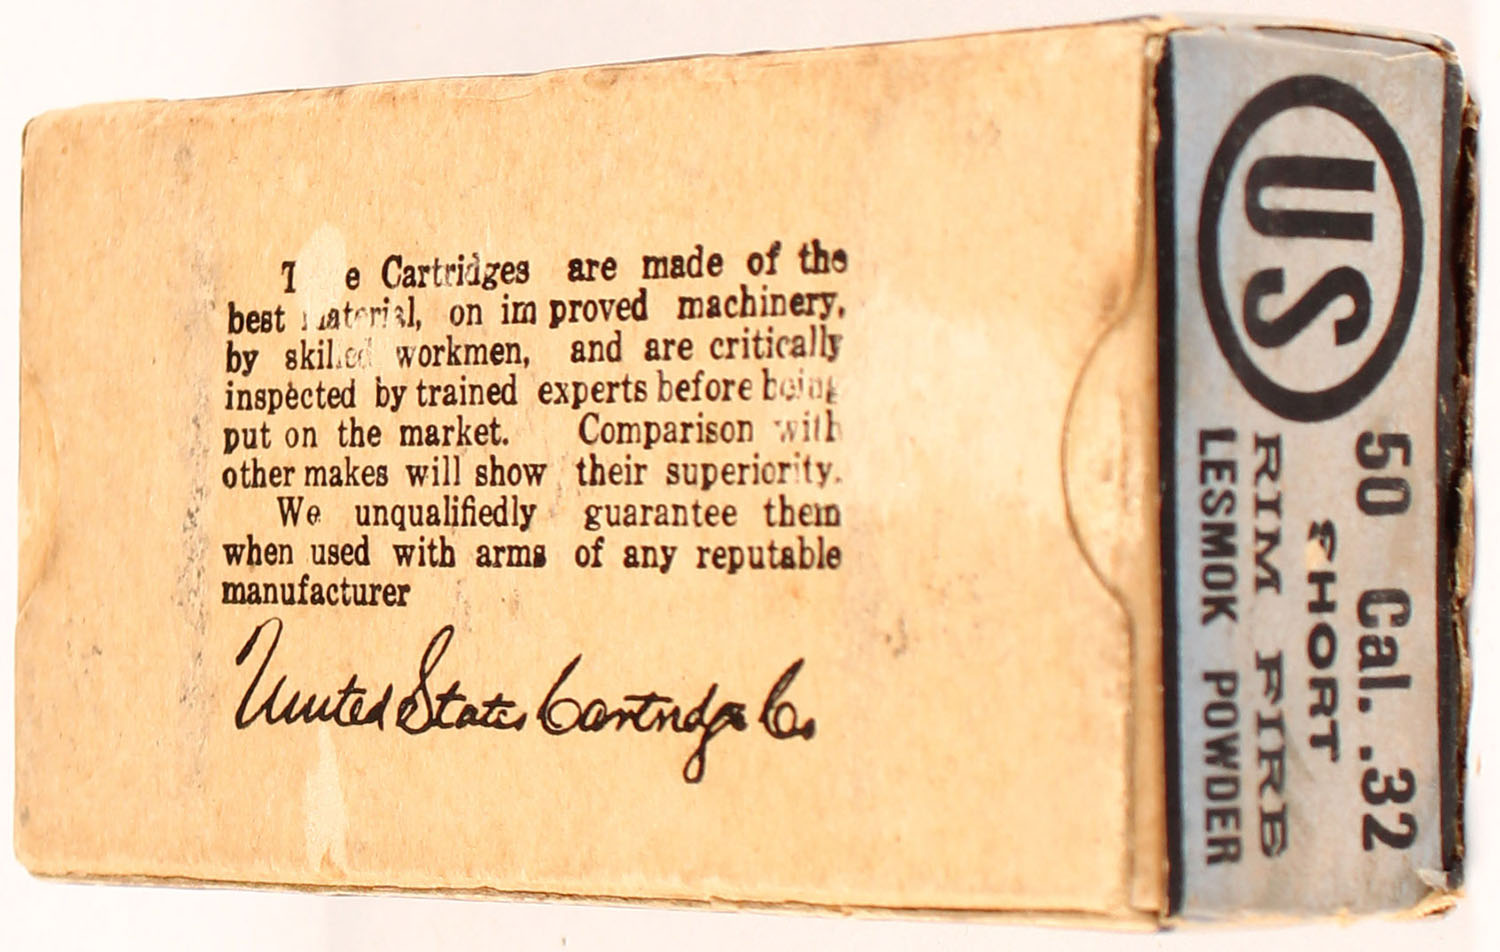 Cartridges are made of the
best material, on improved machinery,
by skilled workmen, and are critically
inspected by trained experts before being
put on the market. Comparison with
other makes will show their superiority.
We unqualifiedly guarantee them
when used with arms of any reputable
manufacturer
United States Cartridge Co
US
50 Cal. .32
SHORT
RIM FIRE
LESMOK POWDER